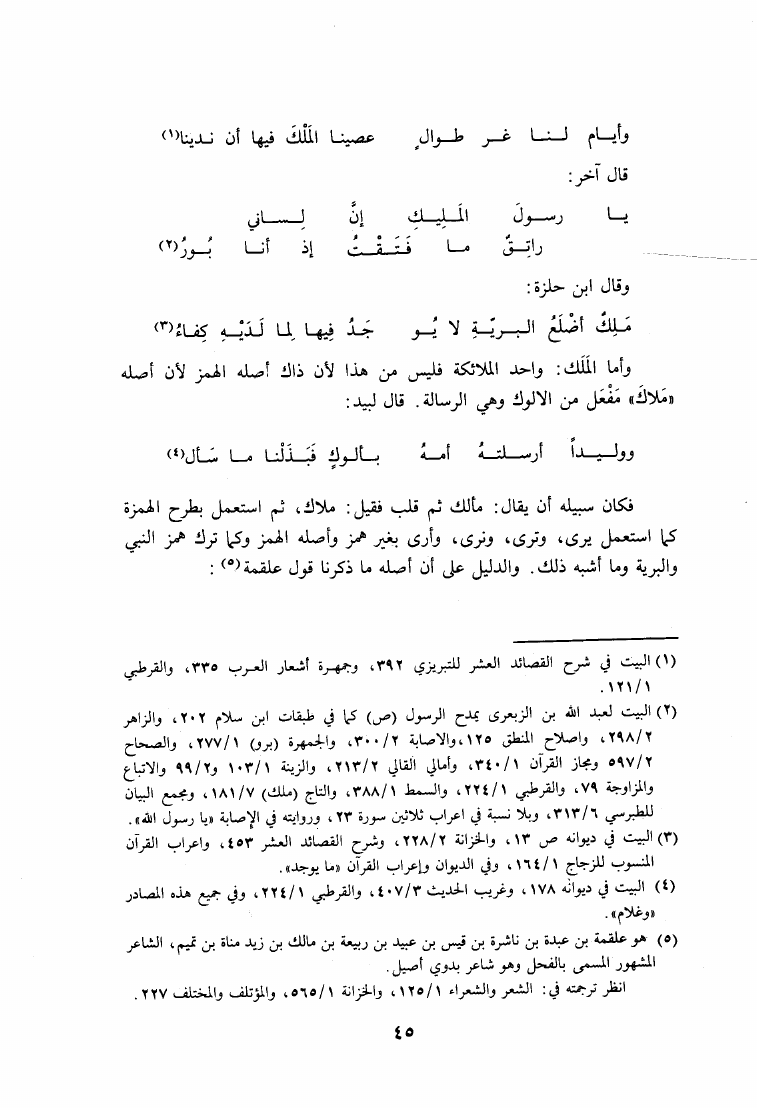 وأيام لنا غر طوالٍ عصينا المَلْكَ فيها أن ندينا(١)
قال آخر:
يا رسولَ المَلِيكِ إنَّ لِساني
راتِقٌ ما فَتَقْتُ إذ أنا بُورُ(٢)
وقال ابن حلزة:
مَلِكٌ أضْلَعُ البريّةِ لا يُو جَدُ فِيها لِما لَدَيْهِ كِفاءُ(٣)
وأما المَلَك: واحد الملائكة فليس من هذا لأن ذاك أصله الهمز لأن أصله
«مَلاكَ» مَفْعَل من الالوك وهي الرسالة. قال لبيد:
ووليداً أرسلتهُ أمهُ بألوكٍ فَبَذَلْنا ما سَأل(٤)
فكان سبيله أن يقال: مألك ثم قلب فقيل: ملاك، ثم استعمل بطرح الهمزة
كما استعمل يرى، وترى، ونرى، وأرى بغير همز وأصله الهمز وكما ترك همز النبي
والبرية وما أشبه ذلك. والدليل على أن أصله ما ذكرنا قول علقمة(٥) :
(١) البيت في شرح القصائد العشر للتبريزي ٣٩٢، وجمهرة أشعار العرب ٣٣٥، والقرطبي
١/ ١٢١.
(٢) البيت لعبد الله بن الزبعرى يمدح الرسول (ص) كما في طبقات ابن سلام ٢٠٢، والزاهر
٢٩٨/٢، واصلاح المنطق ١٢٥، والاصابة ٣٠٠/٢، والجمهرة (برو) ٢٧٧/١، والصحاح
٥٩٧/٢ ومجاز القرآن ٣٤٠/١، وأمالي القالي ٢١٣/٢، والزينة ١٠٣/١ و٩٩/٢ والاتباع
والمزاوجة ٧٩، والقرطبي ٢٢٤/١، والسمط ٣٨٨/١، والتاج (ملك) ١٨١/٧، ومجمع البيان
للطبرسي ٣١٣/٦، وبلا نسبة في اعراب ثلاثين سورة ٢٣، وروايته في الإصابة «يا رسول الله».
(٣) البيت في ديوانه ص ١٣، والخزانة ٢٢٨/٢، وشرح القصائد العشر ٤٥٣، واعراب القرآن
المنسوب للزجاج ١٦٤/١، وفي الديوان وإعراب القرآن «ما يوجد».
(٤) البيت في ديوانه ١٧٨، وغريب الحديث ٤٠٧/٣، والقرطبي ٢٢٤/١، وفي جميع هذه المصادر
«وغلام».
(٥) هو علقمة بن عبدة بن ناشرة بن قيس بن عبيد بن ربيعة بن مالك بن زيد مناة بن تميم، الشاعر
المشهور المسمى بالفحل وهو شاعر بدوي أصيل.
انظر ترجمته في: الشعر والشعراء ١٢٥/١، والخزانة ٥٦٥/١، والمؤتلف والمختلف ٢٢٧.
٤٥